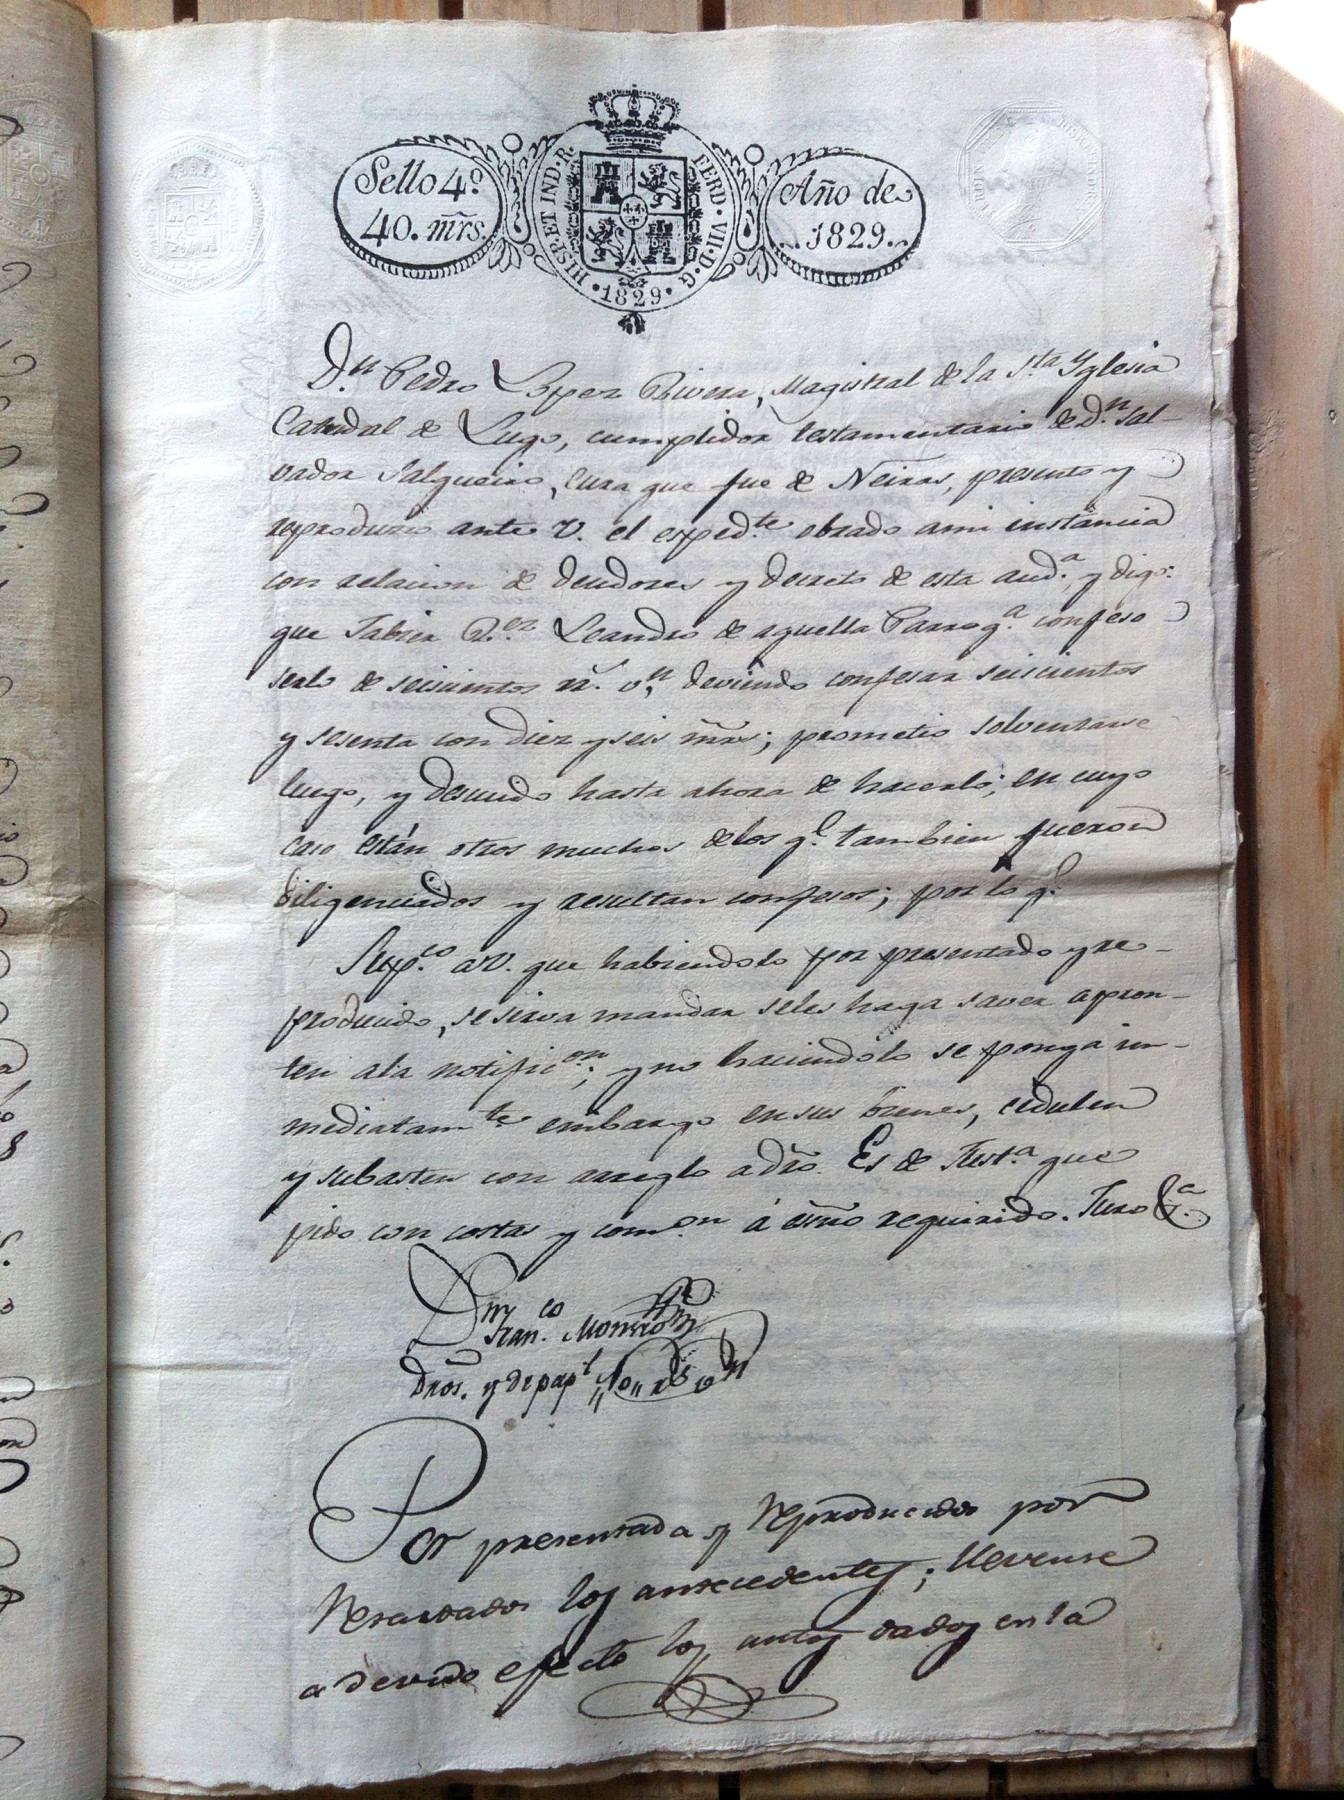 Sello 4.º
40. mrs.
HISP. ET IND. R. FERD. VII. D. G.
1829
Año de
1829.
D.n Pedro Lopez Rivera, Magistral de la S.ta Yglesia
Catedral de Lugo, cumplidor testamentario de D.n Sal-
vador Salgueiro, Cura que fue de Neiras, presento y
reproduzco ante V. el exped.te obrado a mi instáncia
con relacion de deudores y decreto de esta aud.a, y digo:
que Jabier R.ez Leandro de aquella Parroq.a confeso
serlo de seiscientos rr. v.n, deviendo confesar seiscientos
y sesenta con diez y seis mrs; prometio solventarse
luego, y descuido hasta ahora de hacerlo; en cuyo
caso están otros muchos de los q.e tambien fueron
diligenciados y resultan confesos; por lo q.e
Sup.co a V. que habiendolo por presentado y re-
producido, se sirva mandar seles haga saver apron-
ten ala notific.on; y no haciendolo se ponga in-
mediatam.te embargo en sus bienes, cedulen
y subasten con arreglo a dro. Es de Just.a que
pido con costas y com.on á esno requirido. Juro &.a
Fran.co
Dros. y de pap.l
Por presentada y Reproducidos por
Resultados los antecedentes; llevense
a devido efecto los autos dados en la